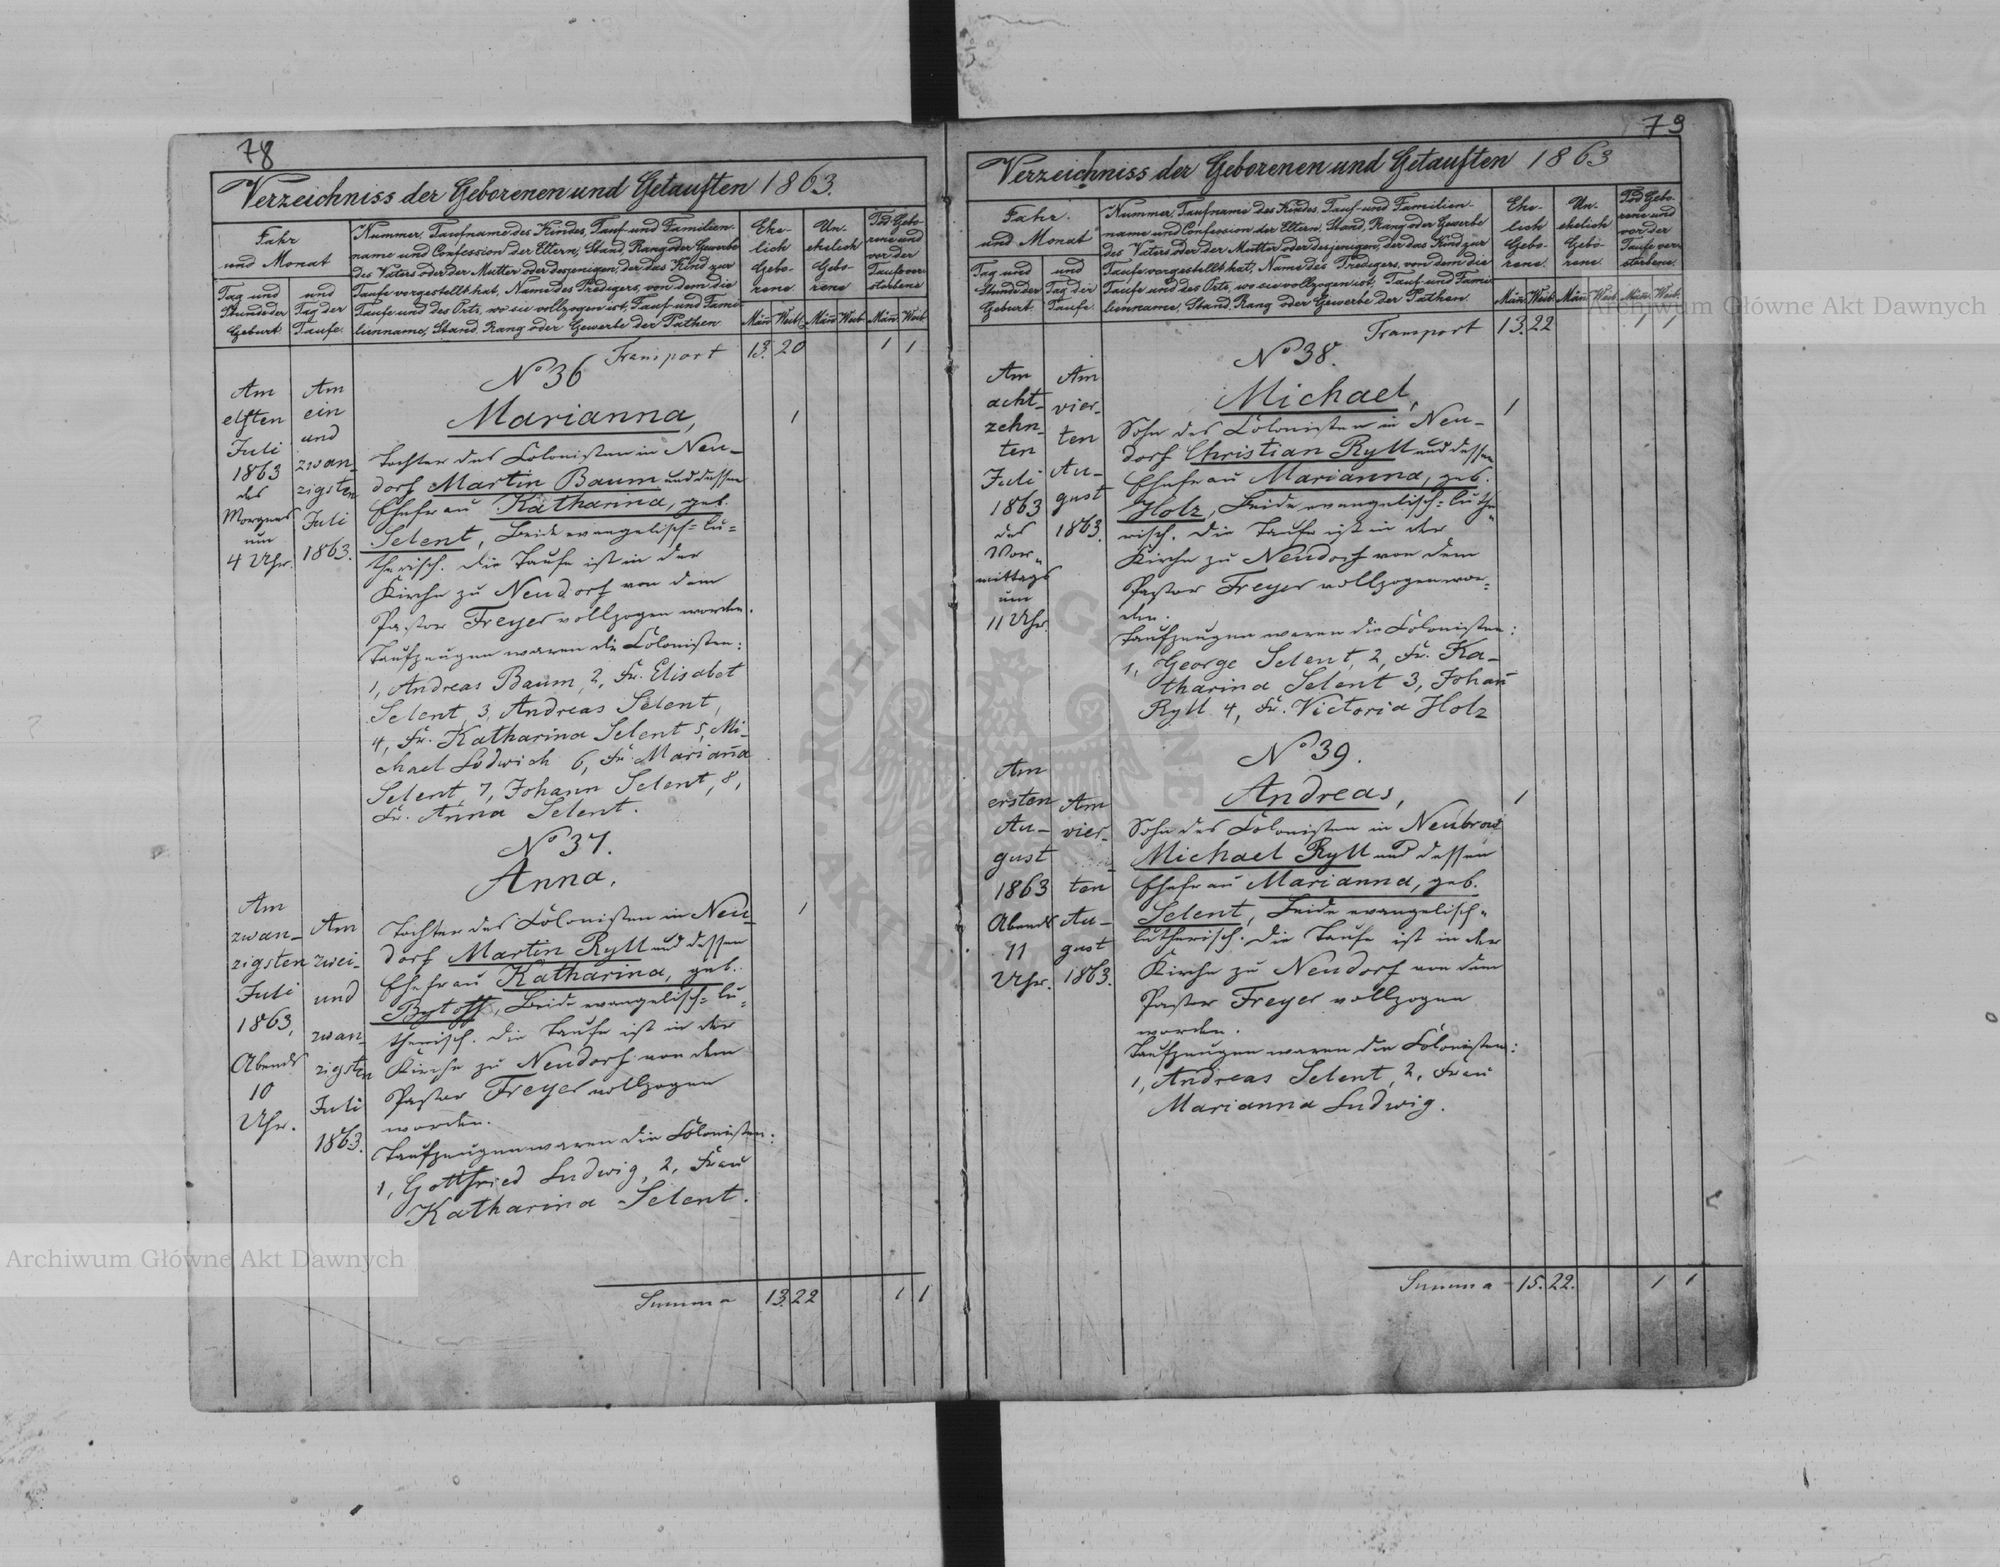 78
Verzeichniss der Geborenen und Getauften 1863.
Jahr
und Monat
Tag und
Stunde der
Geburt.
und
Tag der
Taufe.
Nummer, Taufname des Kindes, Tauf- und Familien-
name und Confession der Eltern, Stand, Rang oder Gewerbe
des Vaters oder der Mutter oder desjenigen, der das Kind zur
Taufe vorgestellt hat, Name des Predigers, von dem die
Taufe und des Orts, wo sie vollzogen ist, Tauf- und Fami-
lienname, Stand, Rang oder Gewerbe der Pathen.
Ehe-
lich
Gebo-
rene
Un-
ehelich
Gebo-
rene
Tod Gebo-
rene und
vor der
Taufe ver-
storbene
Män Weib. Män Weib. Män Weib.
Transport 13. 20 1 1
No 36
Marianna, 1
Am
elften
Juli
1863
des
Morgens
um
4 Uhr.
Am
ein
und
zwan-
zigsten
Juli
1863.
Tochter des Colonisten in Neu-
dorf Martin Baum und dessen
Ehefrau Katharina, geb.
Selent, Beide evangelisch=lu=
therisch. Die Taufe ist in der
Kirche zu Neudorf von dem
Pastor Freyer vollzogen worden.
Taufzeugen waren die Colonisten:
1, Andreas Baum, 2, Fr. Elisabet
Selent, 3, Andreas Selent,
4, Fr. Katharina Selent 5, Mi-
chael Ludwich 6, Fr. Mariana
Selent, 7, Johann Selent, 8,
Fr. Anna Selent.
No 37.
Anna, 1
Am
zwan-
zigsten
Juli
1863,
Abends
10
Uhr.
Am
zwei-
und
zwan-
zigsten
Juli
1863.
Tochter des Colonisten in Neu-
dorf Martin Ryll und dessen
Ehefrau Katharina, geb.
Beide evangelisch=lu=
therisch. Die Taufe ist in der
Kirche zu Neudorf von dem
Pastor Freyer vollzogen
worden.
Taufzeugen waren die Colonisten:
1, Gottfried Ludwig, 2, Frau
Katharina Selent.
Summa 13. 22 1 1
79
Verzeichniss der Geborenen und Getauften 1863
Jahr.
und Monat
Tag und
Stunde der
Geburt.
und
Tag der
Taufe.
Nummer, Taufname des Kindes, Tauf- und Familien-
name und Confession der Eltern, Stand, Rang oder Gewerbe
des Vaters oder der Mutter oder desjenigen, der das Kind zur
Taufe vorgestellt hat, Name des Predigers, von dem die
Taufe und des Orts, wo sie vollzogen ist, Tauf- und Fami-
lienname, Stand, Rang oder Gewerbe der Pathen.
Ehe-
lich
Gebo-
rene.
Un-
ehelich
Gebo-
rene.
Tod Gebo-
rene und
vor der
Taufe ver-
storbene.
Män Weib. Män Weib. Män Weib.
Transport 13. 22 1 1
No 38.
Michael, 1
Am
acht-
zehn-
ten
Juli
1863
des
Vor-
mittags
um
11 Uhr.
Am
vier-
ten
Au-
gust
1863.
Sohn des Colonisten in Neu-
dorf Christian Ryll und dessen
Ehefrau Marianna, geb.
Holz, Beide evangelisch=luthe
risch. Die Taufe ist in der
Kirche zu Neudorf von dem
Pastor Freyer vollzogen wor-
den.
Taufzeugen waren die Colonisten:
1, George Selent, 2, Fr. Ka-
tharina Selent 3, Johan
Ryll 4, Fr. Victoria Holz
No 39.
Andreas, 1
Am
ersten
Au-
gust
1863
Abends
11
Uhr.
Am
vier-
ten
Au-
gust
1863.
Sohn des Colonisten in Neubrow
Michael Ryll und dessen
Ehefrau Marianna, geb.
Selent, Beide evangelisch-
lutherisch. Die Taufe ist in der
Kirche zu Neudorf von dem
Pastor Freyer vollzogen
worden.
Taufzeugen waren die Colonisten:
1, Andreas Selent, 2. Frau
Marianna Ludwig.
Summa 15. 22. 1 1
Archiwum Główne Akt Dawnych
Archiwum Główne Akt Dawnych